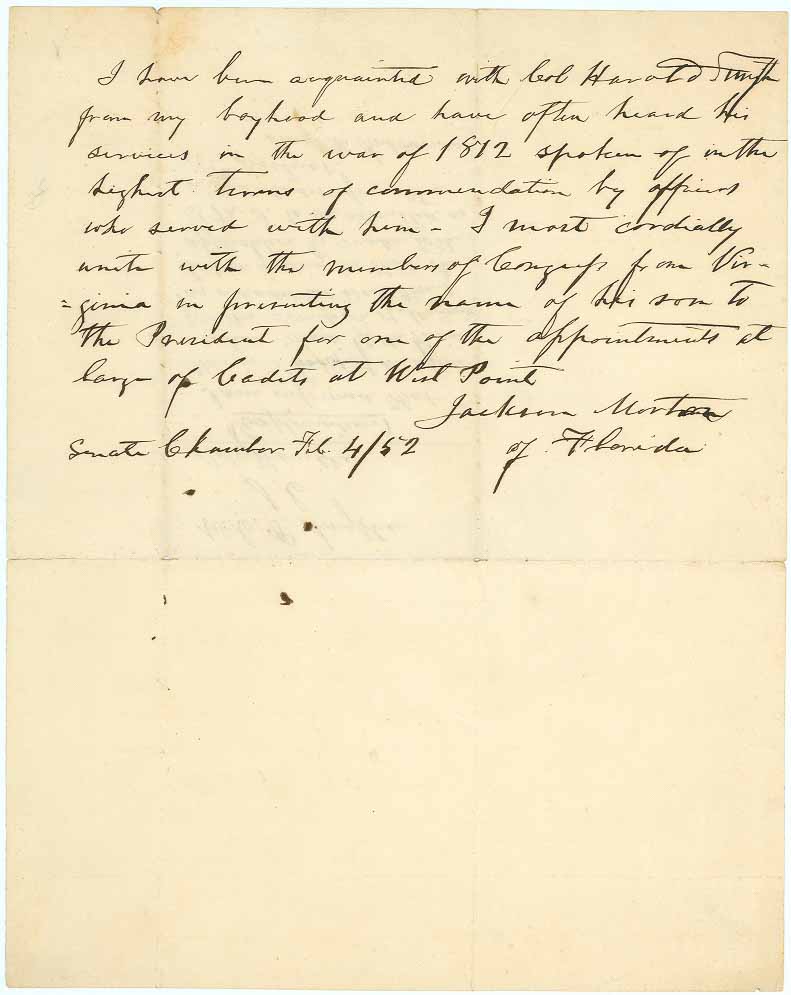 I have been acquainted with Col Harold Smyth
from my boyhood and have often heard his
services in the war of 1812 spoken of in the
highest terms of commendation by officers
who served with him - I most cordially
unite with the members of Congress from Vir-
=ginia in presenting the name of his son to
the President for one of the appointments at
large of Cadets at West Point
Jackson Morton
Senate Chamber Feb. 4/52 of Florida